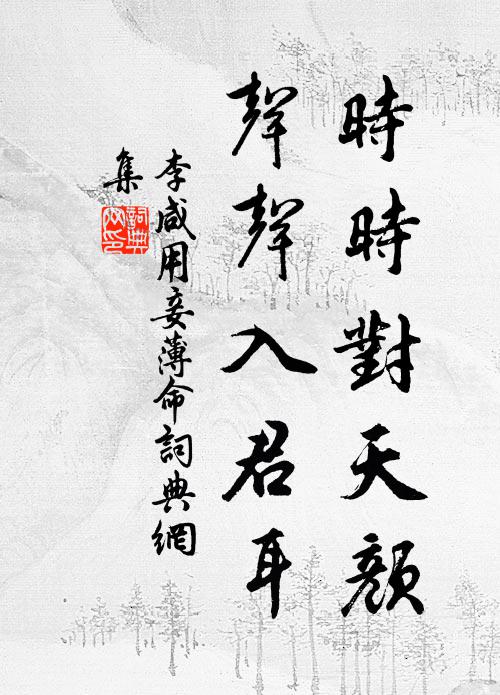 時時對天顏
聲聲入君耳
李咸用妾薄命詞典網
集
詞典
网印